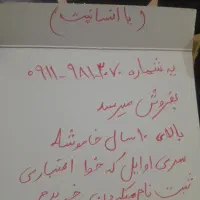 (با انسانیت)
به شماره ۰۹۱۱-۹۸۱۳۰۷۰
بفروش میرسد
بالای ۱۰ سال خاموشه
سری اوایل که خدا اعتباری
ثبت نام میکردن خریدم